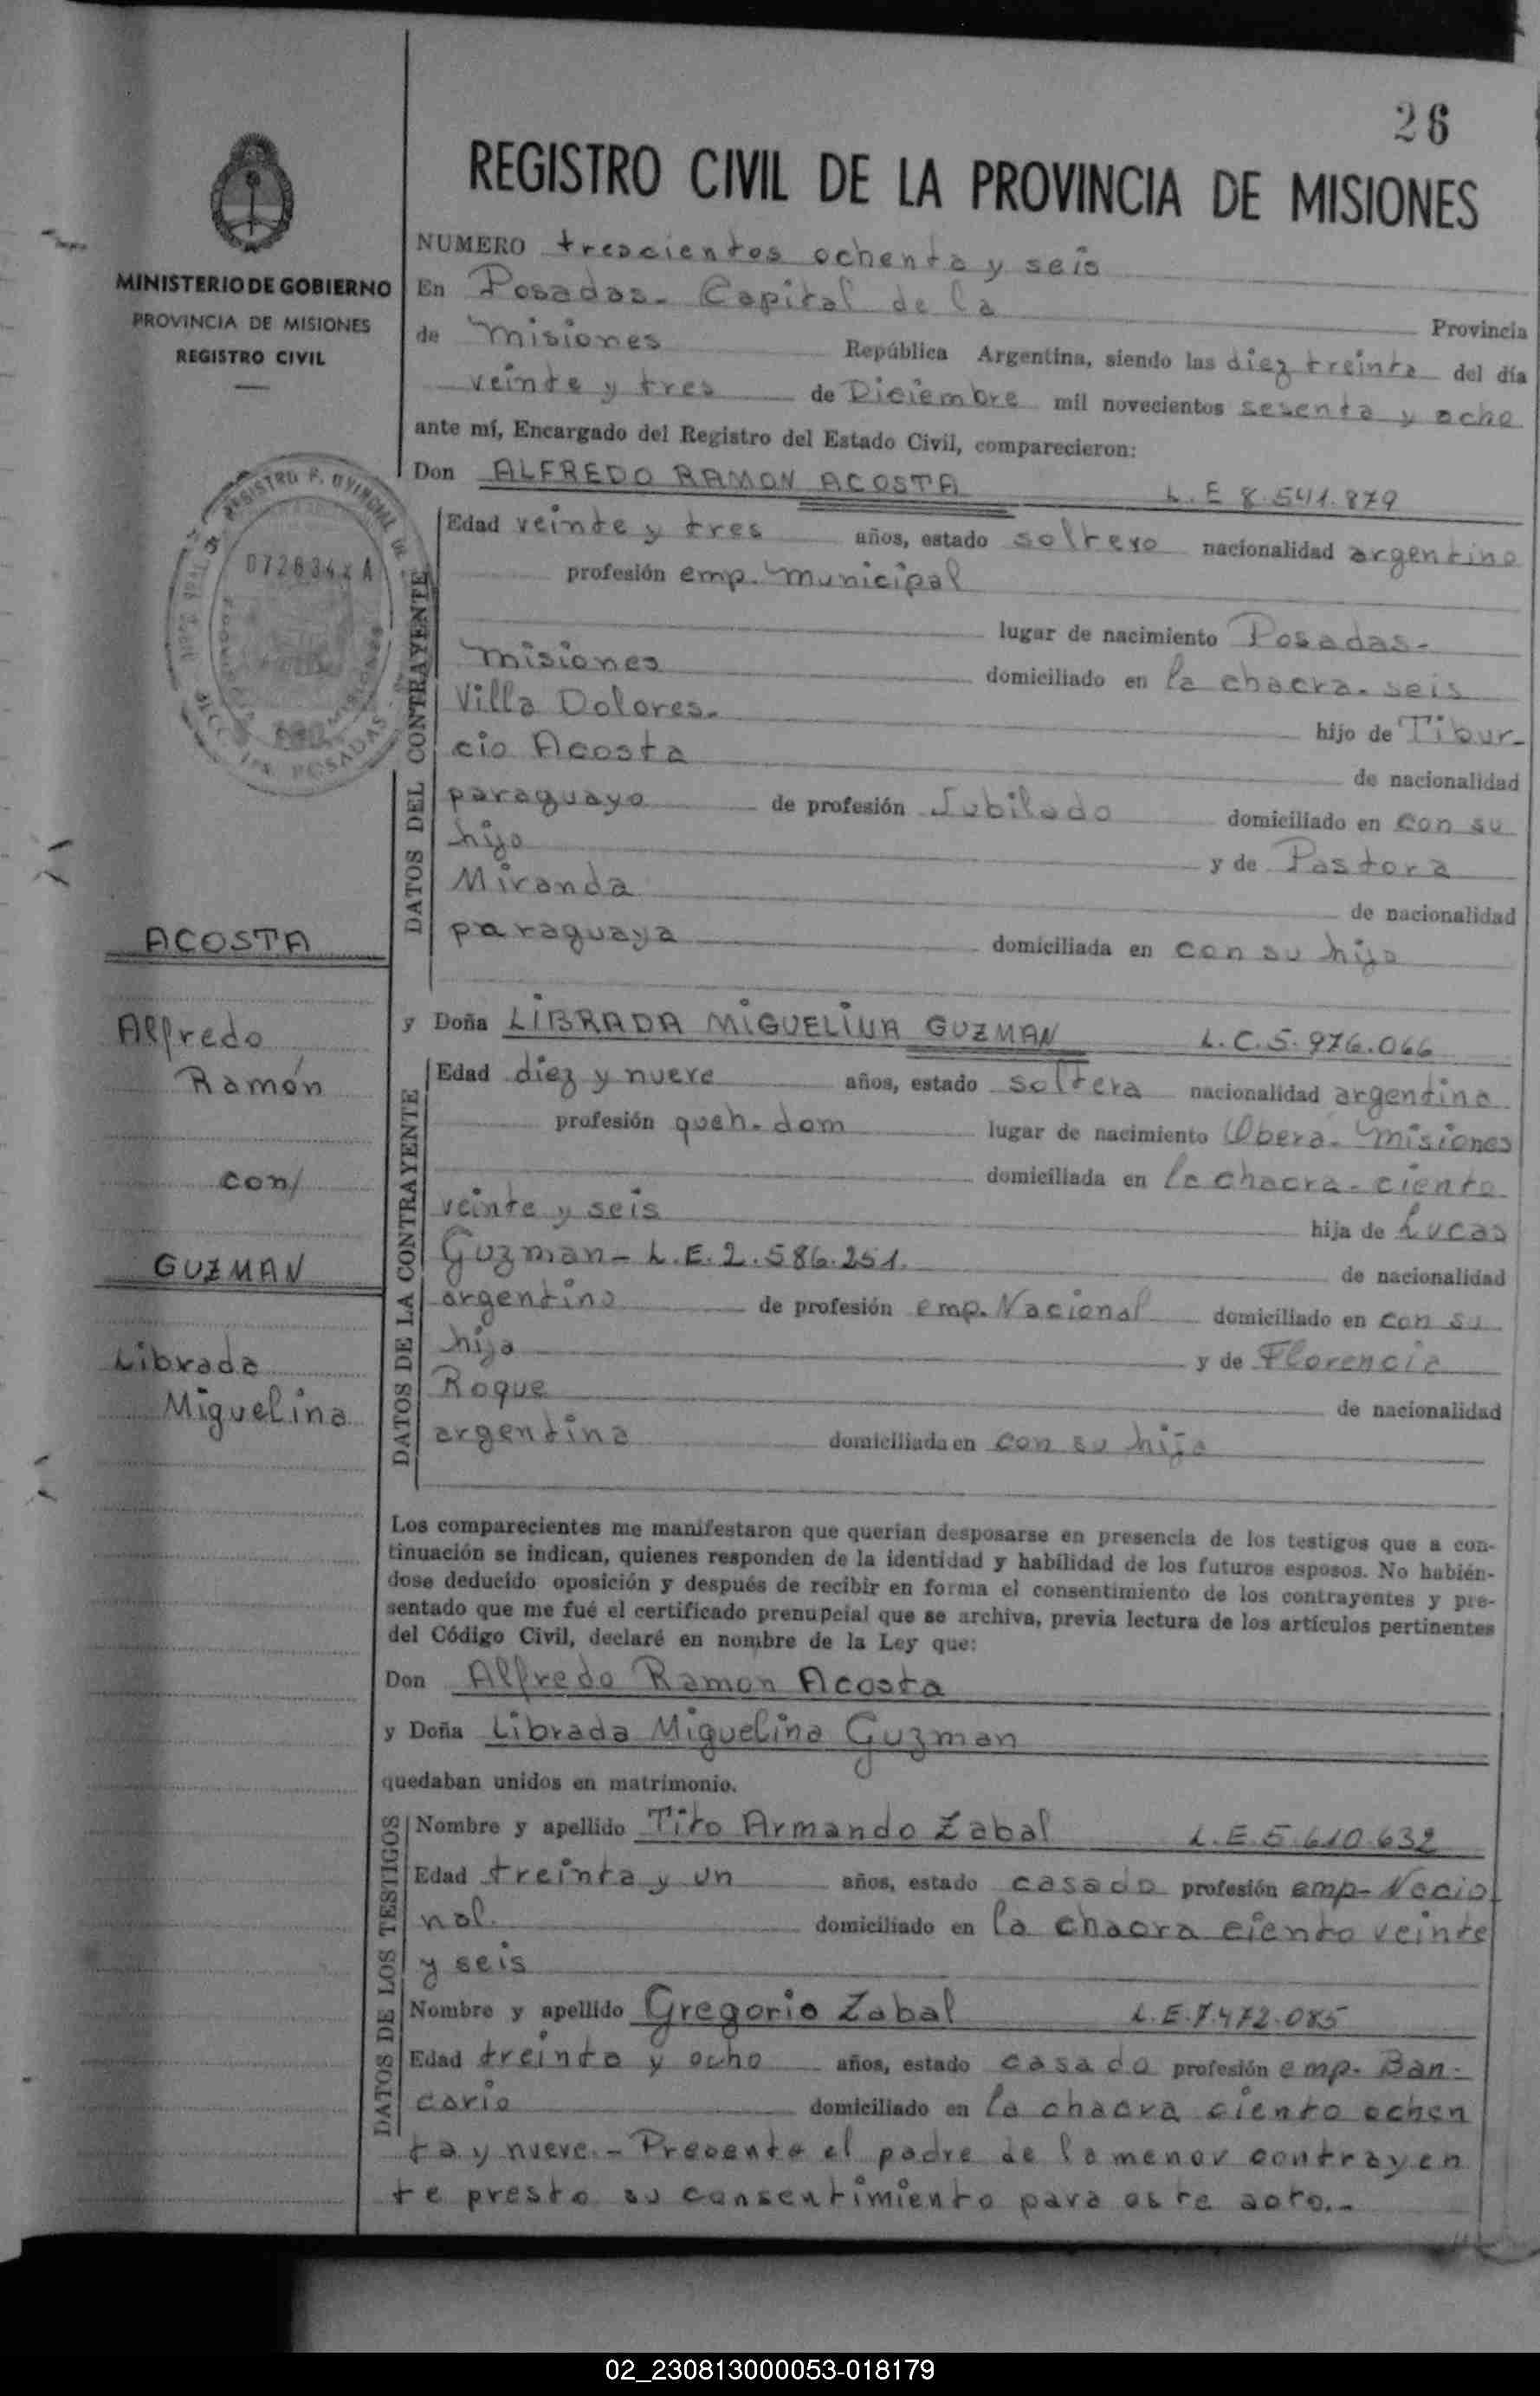 26
REGISTRO CIVIL DE LA PROVINCIA DE MISIONES
MINISTERIO DE GOBIERNO
PROVINCIA DE MISIONES
REGISTRO CIVIL
NUMERO trescientos ochenta y seis
En Posadas - Capital de la Provincia
de Misiones República Argentina, siendo las diez treinta del día
veinte y tres de Diciembre mil novecientos sesenta y ocho
ante mí, Encargado del Registro del Estado Civil, comparecieron:
Don ALFREDO RAMON ACOSTA L. E 8.541.879
DATOS DEL CONTRAYENTE
Edad veinte y tres años, estado soltero nacionalidad argentino
profesión emp. Municipal
lugar de nacimiento Posadas-
Misiones domiciliado en la chacra - seis
Villa Dolores- hijo de Tibur-
cio Acosta de nacionalidad
paraguayo de profesión Jubilado domiciliado en con su
hijo y de Pastora
Miranda de nacionalidad
paraguaya domiciliada en con su hijo
ACOSTA
Alfredo
Ramón
con/
GUZMAN
Librada
Miguelina
y Doña LIBRADA MIGUELINA GUZMAN L. C. 5.976.066
DATOS DE LA CONTRAYENTE
Edad diez y nueve años, estado soltera nacionalidad argentina
profesión queh. dom lugar de nacimiento Obera - Misiones
domiciliada en la chacra - ciento
veinte y seis hija de Lucas
Guzman - L. E. 2.586.251. de nacionalidad
argentino de profesión emp. Nacional domiciliado en con su
hija y de Florencia
Roque de nacionalidad
argentina domiciliada en con su hija
Los comparecientes me manifestaron que querían desposarse en presencia de los testigos que a con-
tinuación se indican, quienes responden de la identidad y habilidad de los futuros esposos. No habién-
dose deducido oposición y después de recibir en forma el consentimiento de los contrayentes y pre-
sentado que me fué el certificado prenupcial que se archiva, previa lectura de los artículos pertinentes
del Código Civil, declaré en nombre de la Ley que:
Don Alfredo Ramon Acosta
y Doña Librada Miguelina Guzman
quedaban unidos en matrimonio.
DATOS DE LOS TESTIGOS
Nombre y apellido Tito Armando Zabal L. E. 5.610.632
Edad treinta y un años, estado casado profesión emp- Nacio
nal. domiciliado en la chacra ciento veinte
y seis
Nombre y apellido Gregorio Zabal L. E. 7.472.085
Edad treinta y ocho años, estado casado profesión emp. Ban-
cario domiciliado en la chacra ciento ochen
ta y nueve. - Presente el padre de la menor contrayen
te presto su consentimiento para este acto.-
02_230813000053-018179